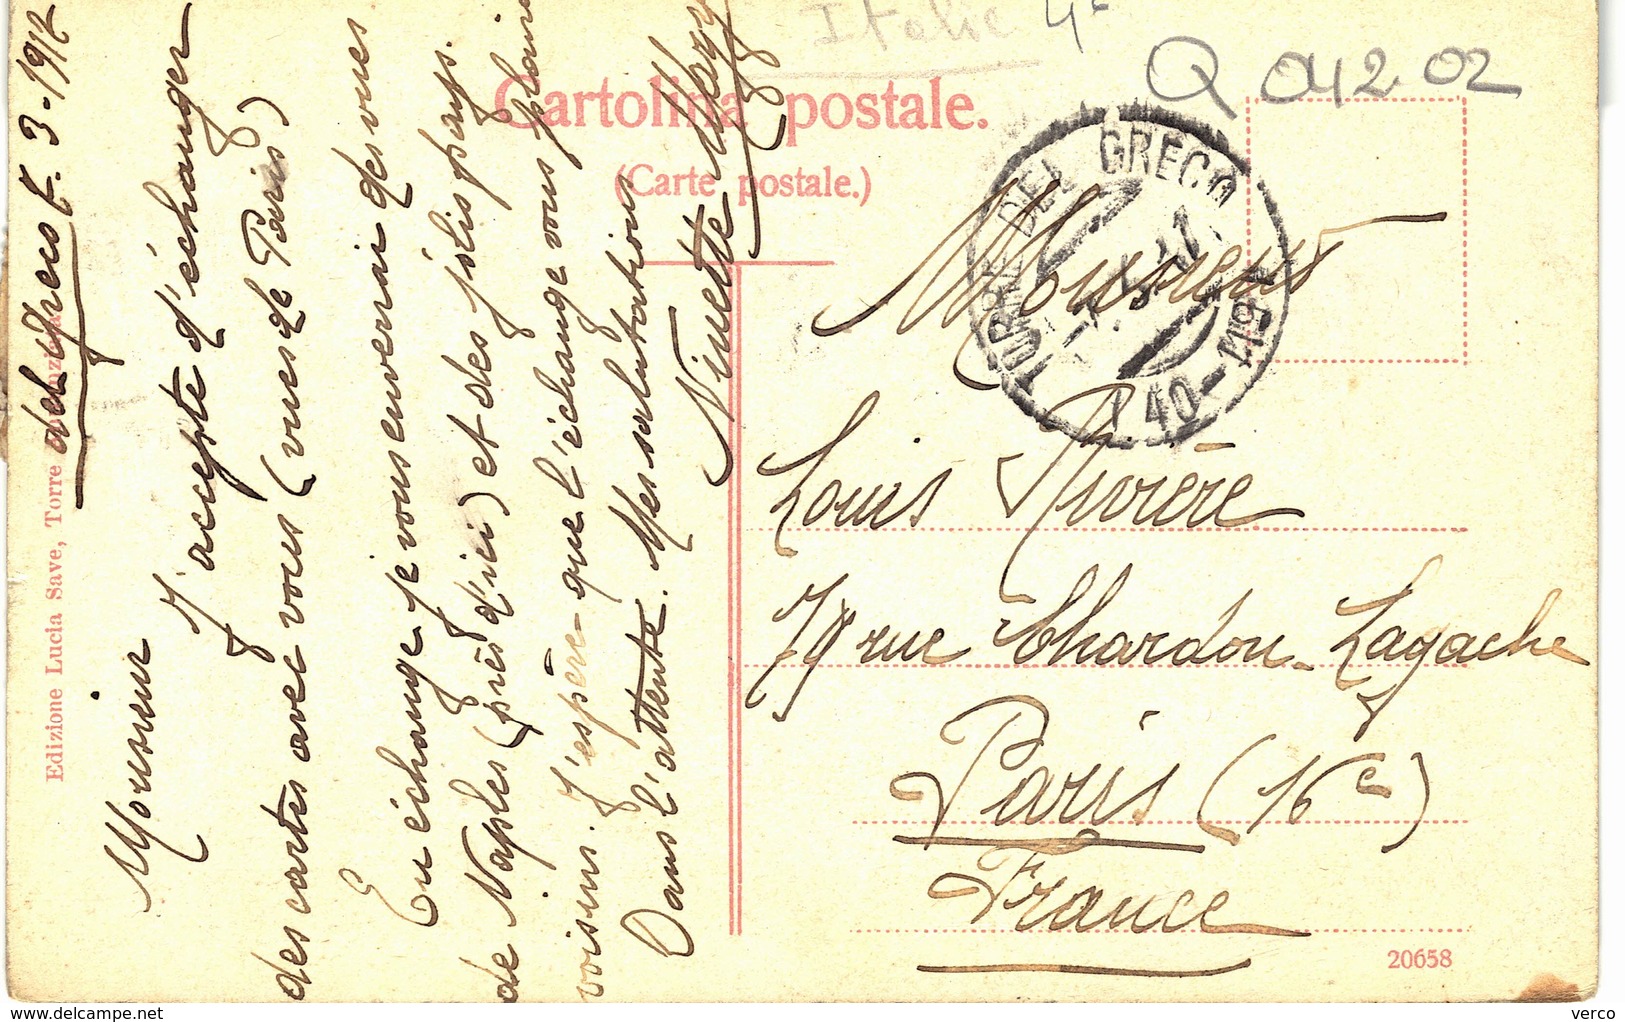 Italie 4€
Q 042 02
Cartolina postale.
(Carte postale.)
TORRE DEL GRECO
Edizione Lucia Save, Torre
del Greco 3-1912
Monsieur
J'accepte d'échanger
des cartes avec vous (vues de Paris)
En échange je vous enverrai des vues
de Naples (près d'ici) et des jolis pays
voisins. J'espère que l'échange vous plaira
Dans l'attente. Mes salutations
Ninette Mary
Monsieur
Louis Rivière
79 rue Chardon-Lagache
Paris (16e)
France
20658
delcampe.net
verco